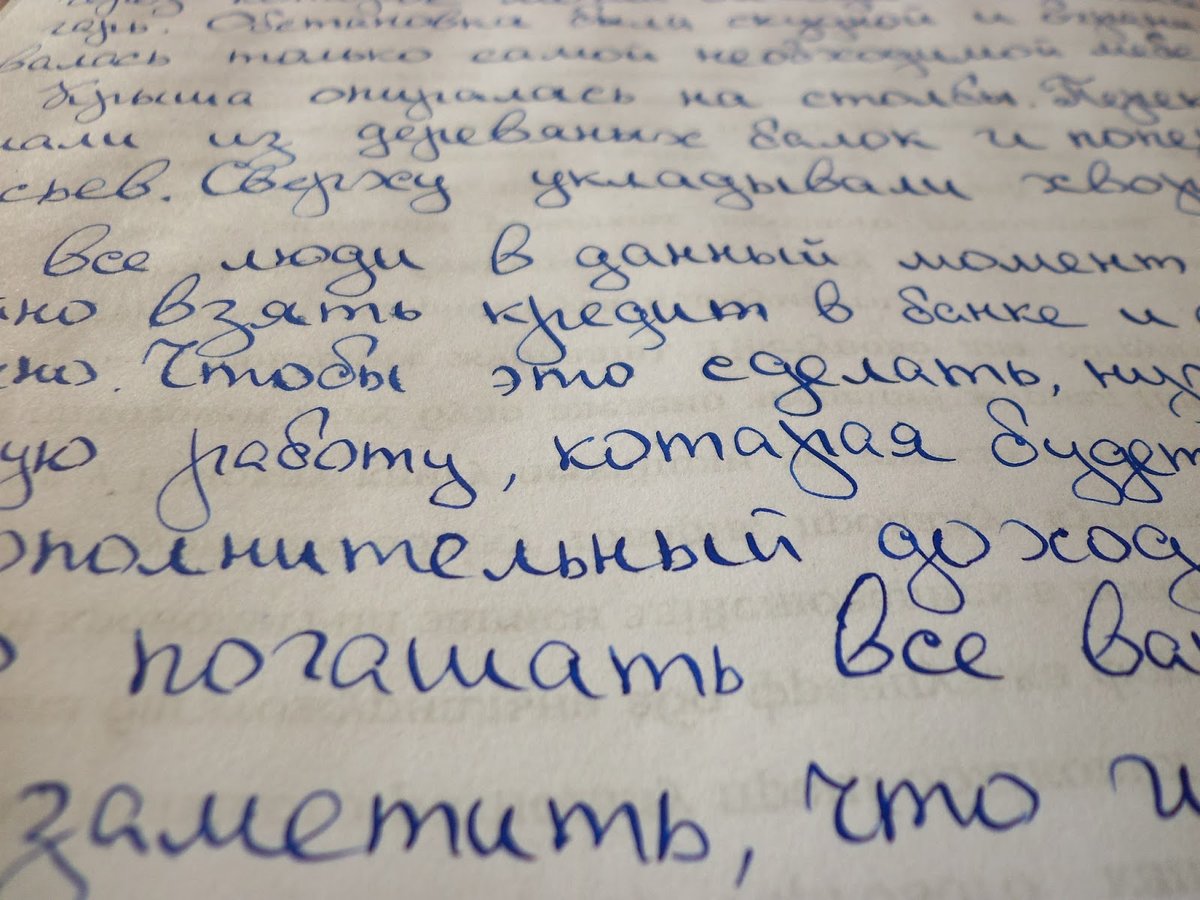 гарь. Обстановка была скудной и
валась только самой необходимой мебе
Крыша опиралась на столбы.
из дереваных балок и попе
сьев. Сверху укладывали хвою
все люди в данный момент
но взять кредит в банке и
Чтобы это сделать, ну
ую работу, которая будет
ополнительный доход
о погашать все ва
заметить, что и